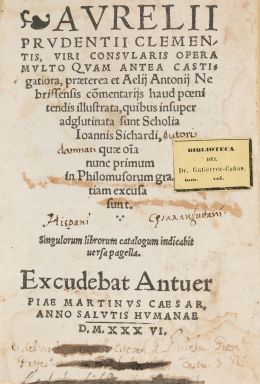 AVRELII
PRVDENTII CLEMEN-
TIS, VIRI CONSVLARIS OPERA
MVLTO QVAM ANTEA CASTI-
gatiora, præterea et Aelij Antonij Ne
brissensis cōmentarijs haud pœni
tendis illustrata, quibus insuper
adglutinata sunt Scholia
Ioannis Sichardi, autoris
damnati quæ oīa
nunc primum
in Philomusorum gra
tiam excusa
sunt.
BIBLIOTECA
DEL
Dr. Gutierrez-Cañas.
num. vol.
Hispani Cæsaraugustani
Singulorum librorum catalogum indicabit
uersa pagella.
Excudebat Antuer
PIAE MARTINVS CAESAR,
ANNO SALVTIS HVMANAE
D. M. XXX VI.